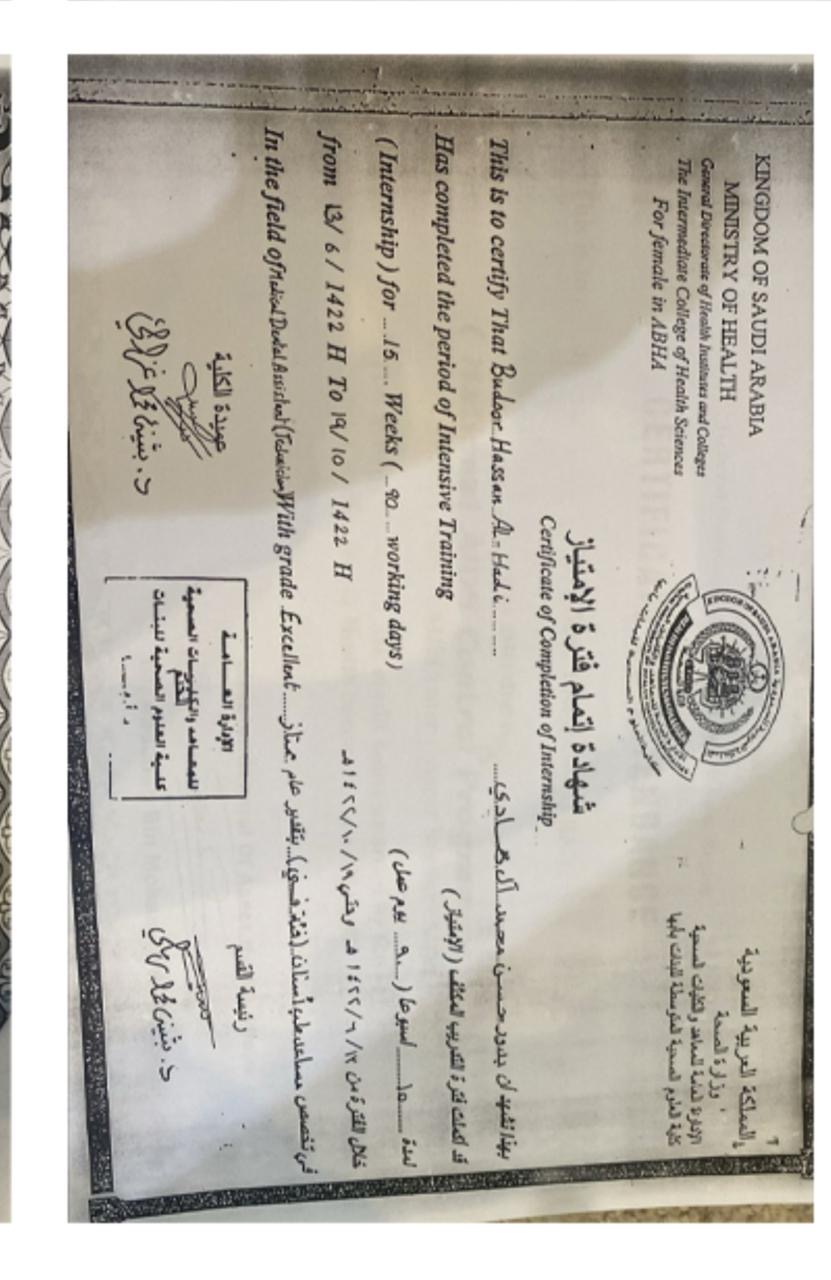 KINGDOM OF SAUDI ARABIA
MINISTRY OF HEALTH
General Directorate of Health Institutes and Colleges
The Intermediate College of Health Sciences
For female in ABHA
المملكة العربية السعودية
وزارة الصحة
الإدارة العامة للمعاهد والكليات الصحية
كلية العلوم الصحية المتوسطة للبنات بأبها
شهادة إتمام فترة الإمتياز
Certificate of Completion of Internship
This is to certify That Budoor Hassan Al-Hadi
بهذا نشهد أن بدور حسن محمد آل هادي
Has completed the period of Intensive Training
قد أكملت فترة التدريب المكثف ( الإمتياز )
( Internship ) for 15 Weeks ( 90 working days )
لمدة ١٥ أسبوعا ( ٩٠ يوم عمل )
from 13/ 6 / 1422 H To 19/ 10 / 1422 H
خلال الفترة من ١٣/ ٦ /١٤٢٢ هـ وحتى ١٩/ ١٠ /١٤٢٢ هـ
In the field of Medical Dental Assistant (Technician) With grade Excellent
في تخصص مساعد طب أسنان (فئة فني) بتقدير عام ممتاز
عميدة الكلية
رئيسة القسم
الإدارة العامة
للمعاهد والكليات الصحية
الختم
كلية العلوم الصحية للبنات